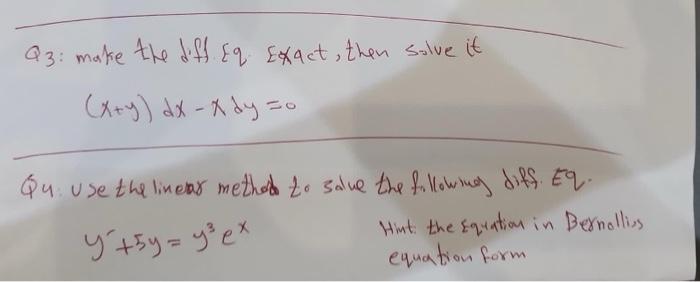 Q3: make the diff. Eq. Exact, then solve it
(x+y) dx - x dy = 0
Q4: use the linear method to solve the following diff. Eq.
y´+5y = y³ eˣ
Hint: the Equation in Bernollis
equation form